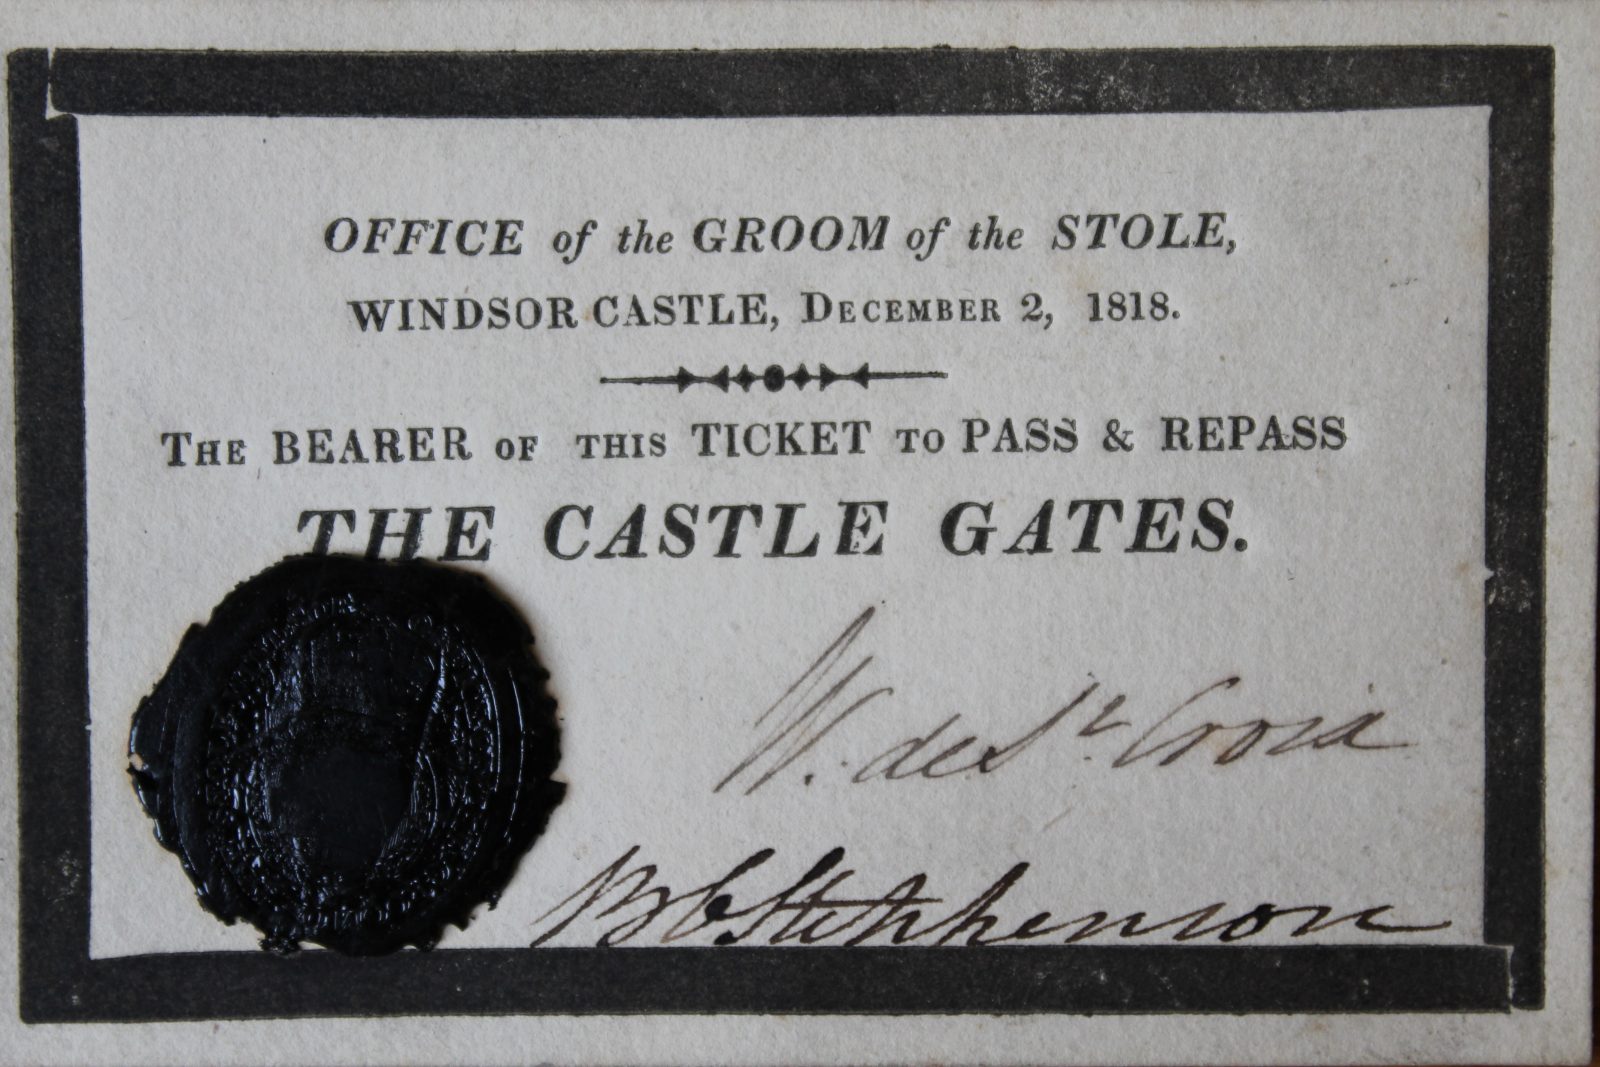 OFFICE of the GROOM of the STOLE,
WINDSOR CASTLE, DECEMBER 2, 1818.
THE BEARER OF THIS TICKET TO PASS & REPASS
THE CASTLE GATES.
W. de St. Croix
BCStephenson